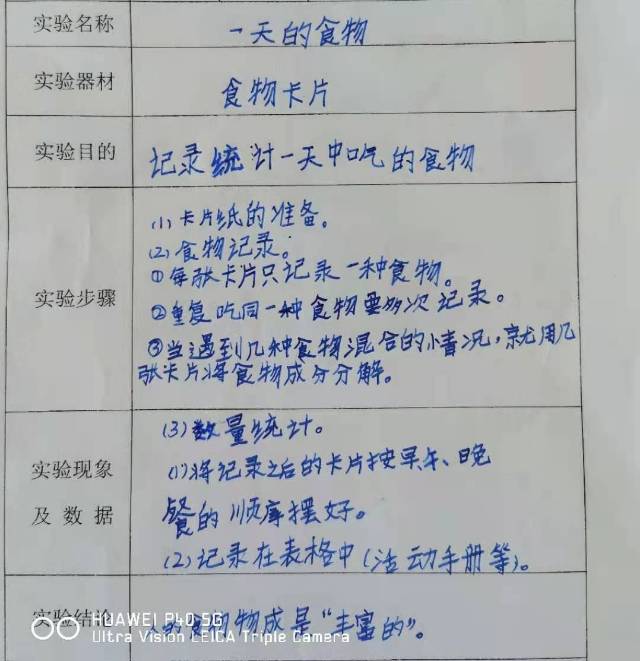 实验名称 一天的食物
实验器材 食物卡片
实验目的 记录统计一天中吃的食物
实验步骤
(1)卡片纸的准备。
(2)食物记录。
①每张卡片只记录一种食物。
②重复吃同一种食物要多次记录。
③当遇到几种食物混合的情况,就用几
张卡片将食物成分分解。
实验现象
及数据
(3)数量统计。
(1)将记录之后的卡片按早午、晚
餐的顺序摆好。
(2)记录在表格中(活动手册等)。
实验结论 的食物物成是“丰富的”。
HUAWEI P40 5G
Ultra Vision LEICA Triple Camera